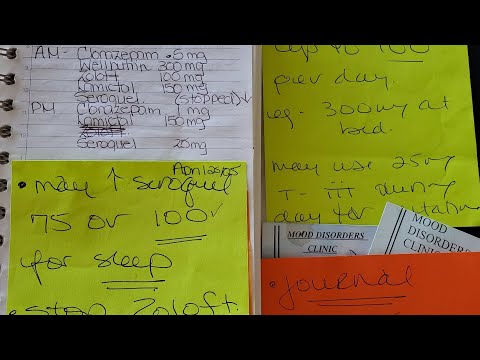 AM - Clonazepam .5mg
Wellbutrin 300mg
Zoloft 100mg
Lamictal 150mg
Seroquel (stopped)↓
PM Clonazepam 1mg
Lamictal 150mg
Zoloft
Seroquel 20mg
April 25/05
• may ↑ seroquel
75 or 100
for sleep
• stop Zoloft.
up to 100
per day.
eg - 300mg at
bed.
may use 25mg
T - iii during
day for
MOOD DISORDERS
CLINIC
MOOD
DISORDERS
CLINIC
• Journal